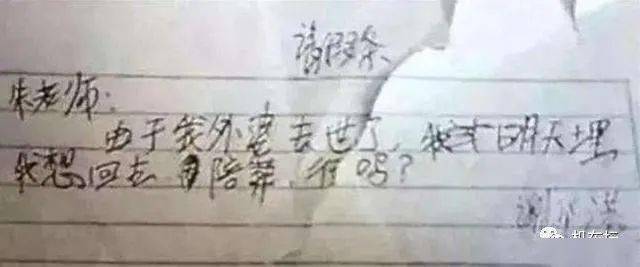 请假条
朱老师:
由于我外婆去世了,我 明天埋
我想回去 陪葬,行吗?